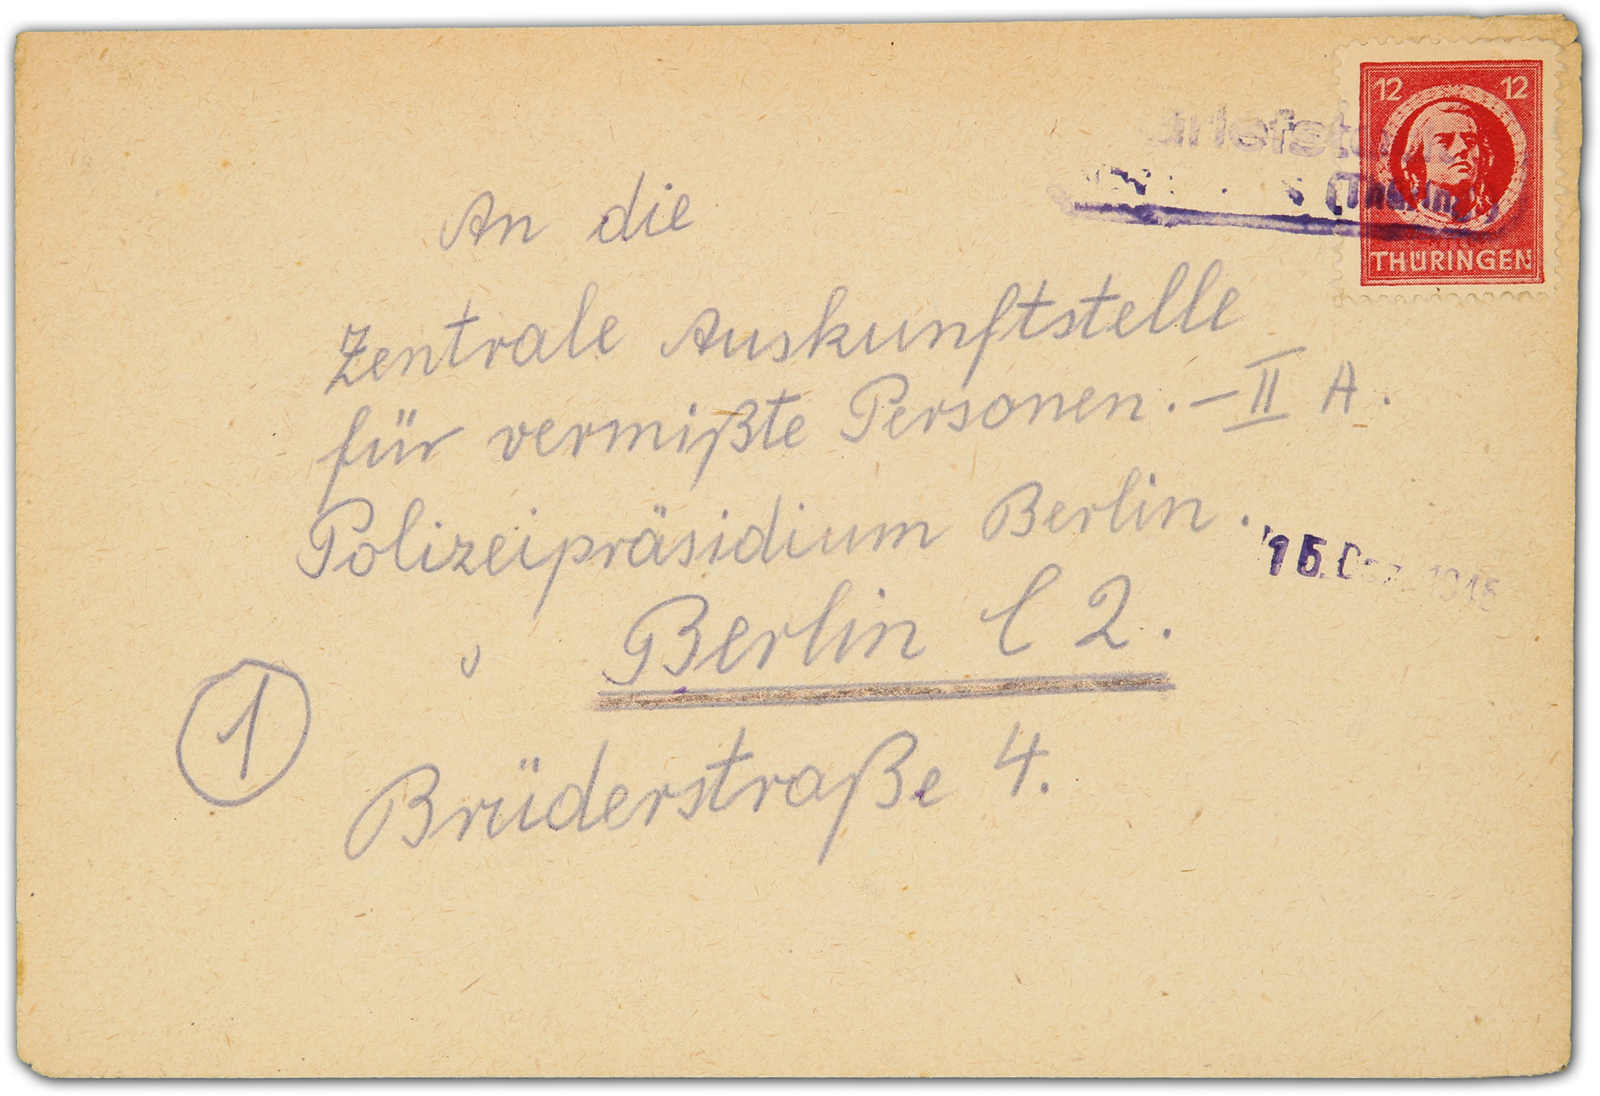 12 12
(Thüring.)
THÜRINGEN
An die
Zentrale Auskunftstelle
für vermißte Personen. – II A.
Polizeipräsidium Berlin.
15. Dez. 1945
Berlin C 2.
1
Brüderstraße 4.